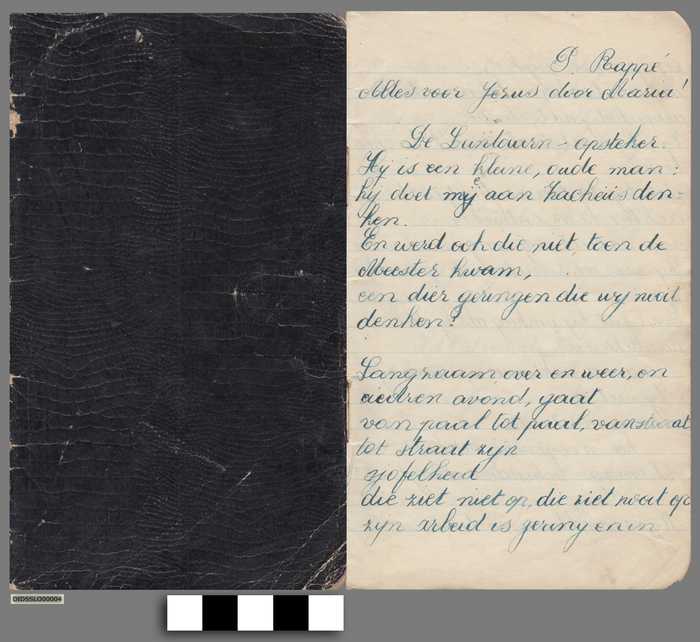 P. Rappé
Alles voor Jezus door Maria!
De Lantaarn-opsteker.
Hij is een kleine, oude man:
hij doet mij aan Zacheüs den-
ken.
En werd ook die niet, toen de
Meester kwam,
een dier geringen die wij nooit
denken?
Langzaam over en weer, en
iederen avond, gaat
van paal tot paal, van straat
tot straat zijn
sjofelheid
die ziet niet op, die ziet nooit op
zijn arbeid is gering en in